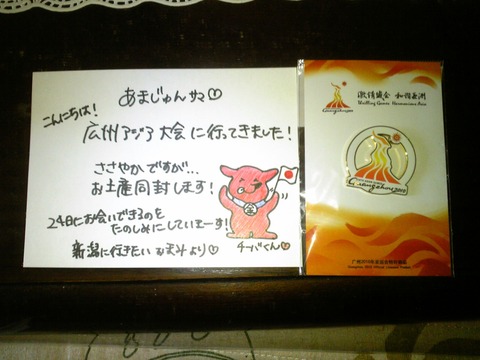 あまじゅんサマ♡
こんにちは!
広州アジア大会に行ってきました!
ささやかですが…
お土産同封します!
24日にお会いできるのを
たのしみにしていまーす!
新潟に行きたい なおみより♡
チーバくん
激情盛会 和谐亚洲
Thrilling Games Harmonious Asia
Guangzhou
Guangzhou 2010
广州2010年亚运会特许商品
Guangzhou 2010 Official Licensed Product